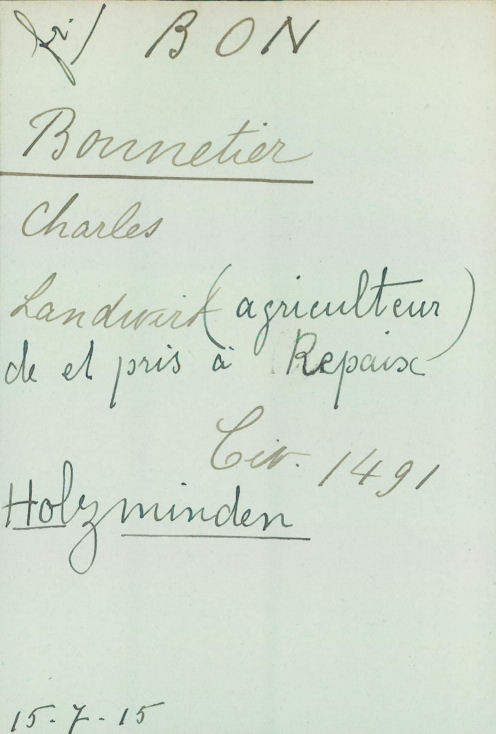 fr. BON
Bonnetier
Charles
Landwirt (agriculteur)
de et pris à Repaix
Civ. 1491
Holzminden
15-7-15